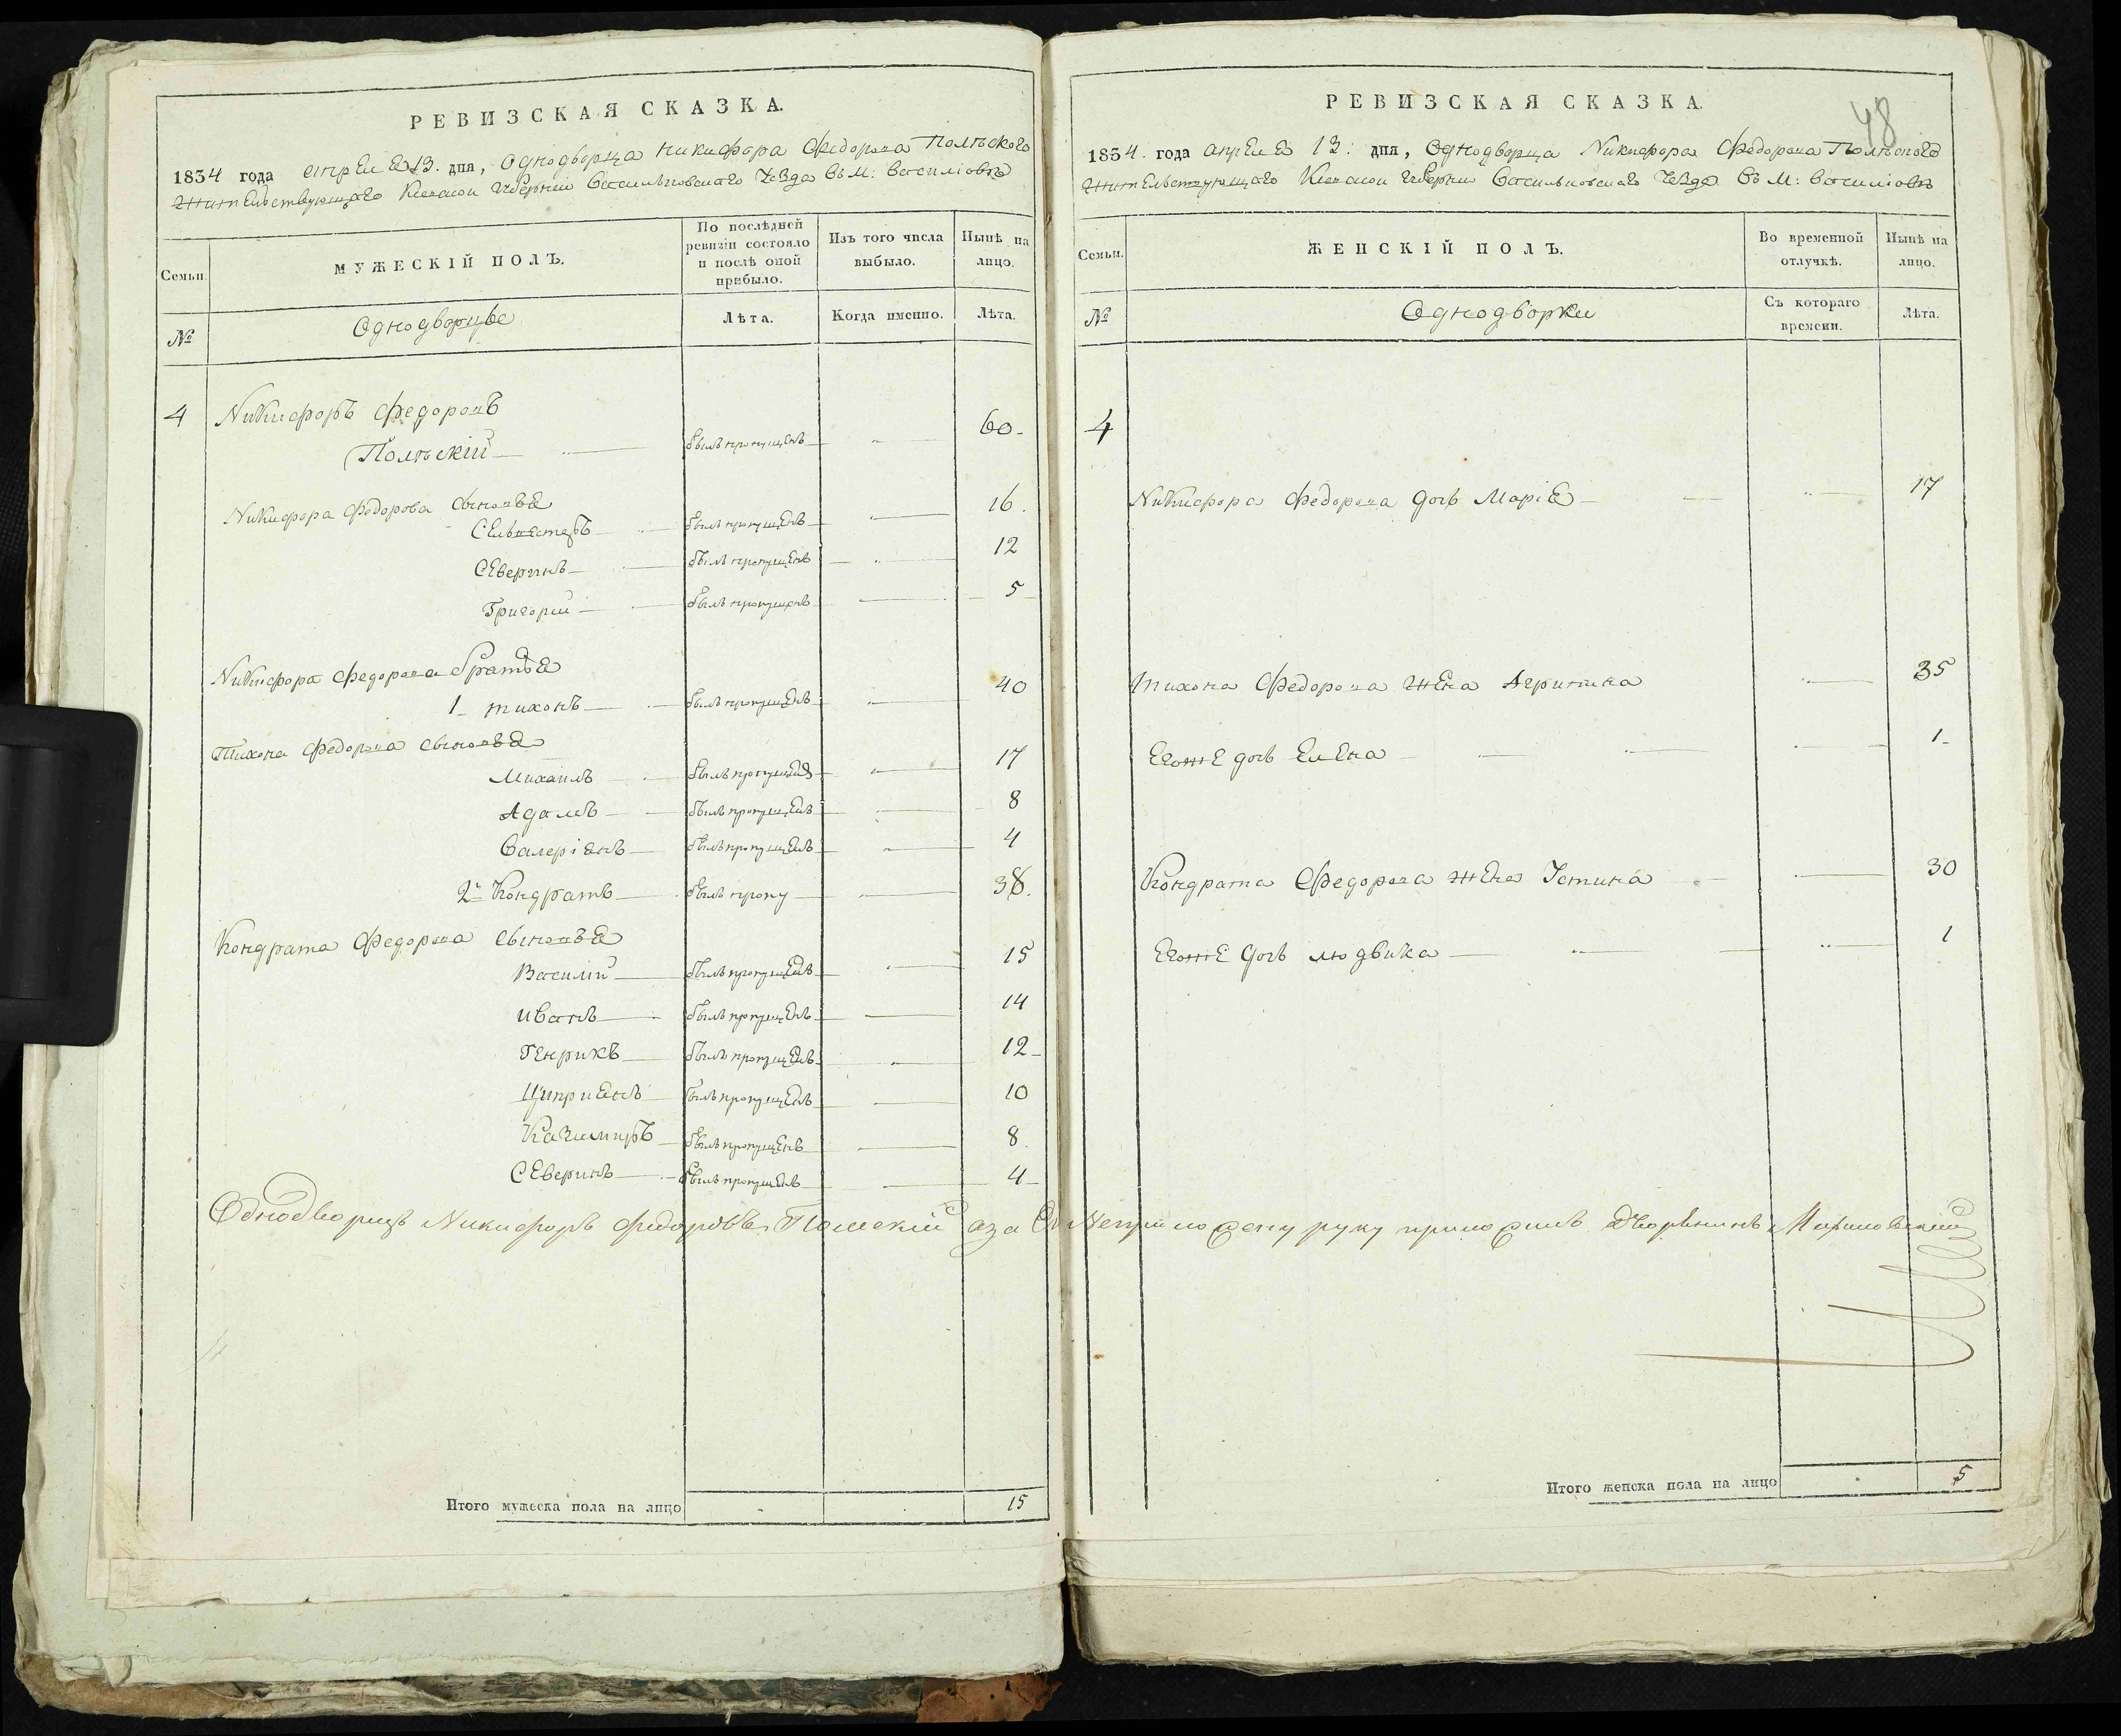 РЕВИЗСКАЯ СКАЗКА.
1834 года апреля 13. дня, Однодворца Никифора Федорова Польского
Жительствующаго Киевской Губернии Васильковскаго Уезда въ М:
Семьи.
МУЖЕСКІЙ ПОЛЪ.
По послѣдней ревизіи состояло и послѣ оной прибыло.
Изъ того числа выбыло.
Нынѣ на лицо.
№
Однодворцы
Лѣта.
Когда именно.
Лѣта.
4 Никифоръ Федоровъ
Польскій былъ пропущенъ 60
Никифора Федорова сыновья
Сельвестеръ былъ пропущенъ 16
Северинъ былъ пропущенъ 12
Григорий былъ пропущенъ 5
Никифора Федорова братья
1 тихонъ былъ пропущенъ 40
Тихона Федорова сыновья
Михаилъ былъ пропущенъ 17
Адамъ былъ пропущенъ 8
Валеріянъ былъ пропущенъ 4
2й Кондратъ былъ пропу 38.
Кондрата Федорова сыновья
Василий былъ пропущенъ 15
иванъ былъ пропущенъ 14
Генрикъ былъ пропущенъ 12
Циприянъ былъ пропущенъ 10
Казимиръ былъ пропущенъ 8
Северинъ былъ пропущенъ 4
Однодворецъ Никифоръ Федоровъ Польскій а за руку приложилъ Дворянинъ
Итого мужеска пола на лицо 15
48
РЕВИЗСКАЯ СКАЗКА.
1834. года апреля 13: дня, Однодворца Никифора Федорова Польского
Жительствующаго Киевской Губернии Васильковскаго Уезда въ М:
Семьи.
ЖЕНСКІЙ ПОЛЪ.
Во временной отлучкѣ.
Нынѣ на лицо.
№
Однодворки
Съ котораго времени.
Лѣта.
4
Никифора Федорова дочь Марія 17
тихона Федорова жена Агрипина 35
Егоже дочь Елена 1
Кондрата Федорова жена Устина 30
Егоже дочь людвика 1
Итого женска пола на лицо 5